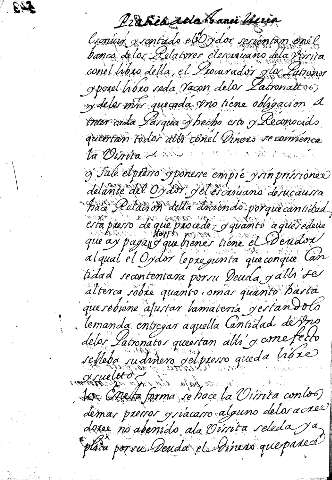 Comun y sentado el Oydor se sientan en el
banco de los Relatores el escrivano de la Visita
con el libro della, el Procurador y los Patronos
y por el libro se da razon de los Patronattos,
y de los mrs que cada uno tiene obligacion a
traer cada Pasqua y hecho esto y Reconocido
que estan todos alli con el Dinero se comienza
la Visita
y sale el preso y ponese en pie y sin prisiones
delante del Oydor, y el escrivano de su caussa
haze Relacion della diciendo, porque cantidad
esta preso de que procede, y quanto a que se deve
que ay pagado y que bienes tiene el Deudor
al qual el Oydor le pregunta que con que Can
tidad se contentara por su Deuda y alli se
alterca sobre quanto, o mas quanto hasta
que se biene ajustar la materia y estandolo
le manda entregar aquella Cantidad de uno
de los Patronatos que estan alli y con efecto
se lleba su dinero y el presso queda libre
y suelto
Y en Esta forma se haze la Visita con los
demas pressos y si acaso alguno de los acree
dores no a benido, a la Visita se le da ya
plaza por su Deuda el Dinero que pareze